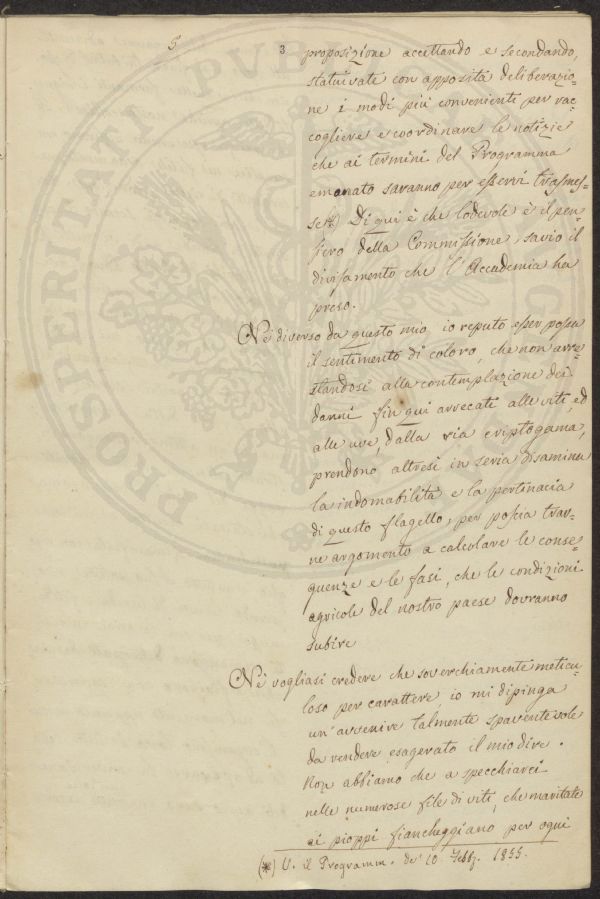 5
3
proposizione accettando e secondando,
statuivate con apposita deliberazio=
ne i modi più convenienti per rac=
cogliere e coordinare le notizie
che ai termini del Programma
emanato saranno per esservi trasmes=
se(*) Di qui è che lodevole è il pen=
siero della Commissione, savio il
divisamento che l'Accademia ha
preso.
Nè diverso da questo mio, io reputo esser possa
il sentimento di coloro, che non arre=
standosi alla contemplazione dei
danni fin qui arrecati alle viti, ed
alle uve, dalla ria criptogama,
prendono altresì in seria disamina
la indomabilità e la pertinacia
di questo flagello, per poscia trar=
ne argomento a calcolare le conse=
guenze e le fasi, che le condizioni
agricole del nostro paese dovranno
subire
Nè vogliasi credere che soverchiamente meticu=
loso per carattere, io mi dipinga
un'avvenire talmente spaventevole
da rendere esagerato il mio dire.
Non abbiamo che a specchiarci
nelle numerose file di viti, che maritate
ai pioppi fiancheggiano per ogni
(*) V. il Programm. de' 10 Febb. 1855.
PROSPERITATI PUB